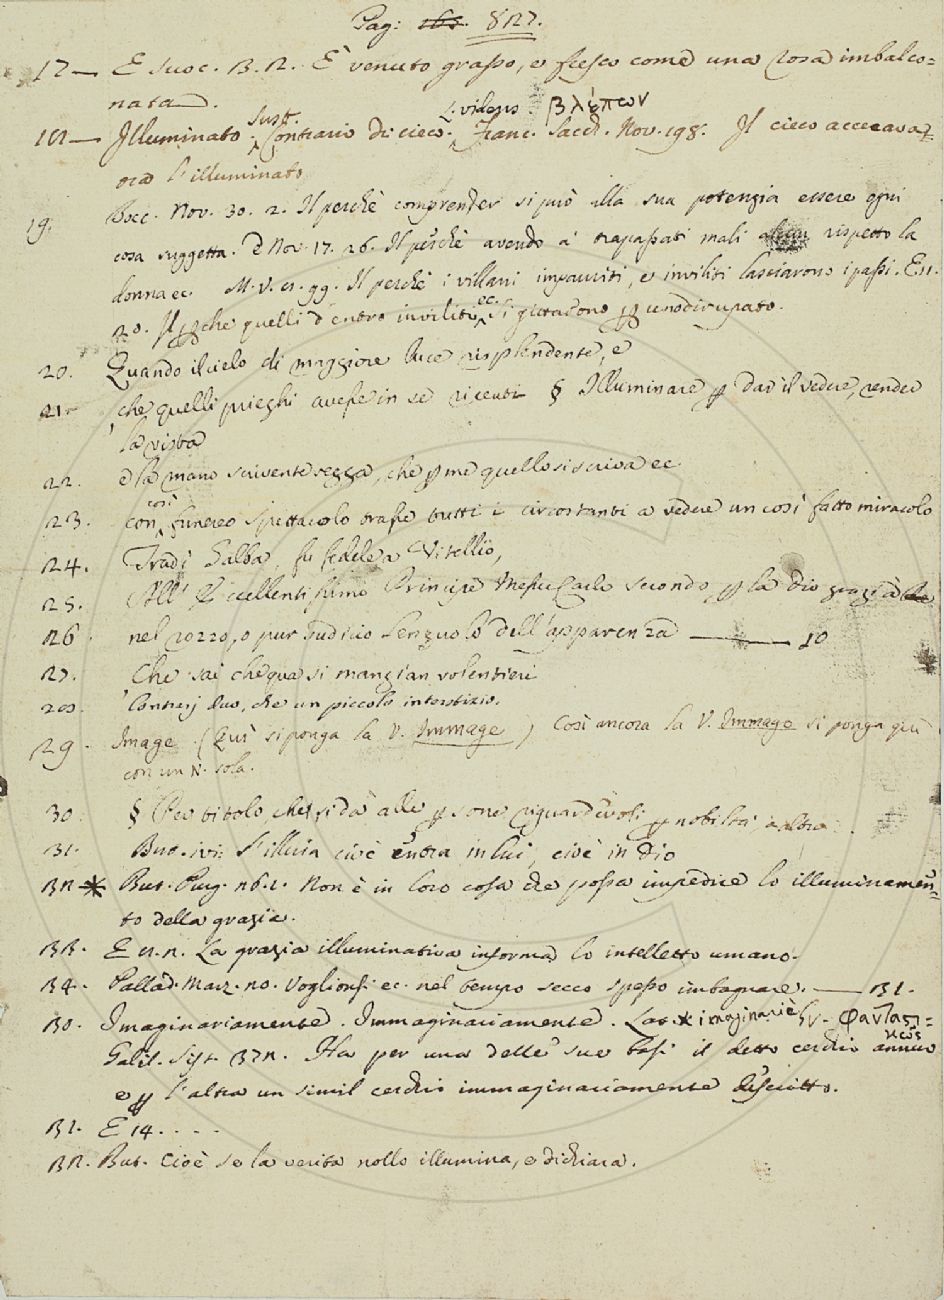 Pag: 165. 827.
17— E suoc. B. 2. È venuto grasso, e fresco come una rosa imbalco=
nata.
Sust. L. videns. βλέπων
18— Illuminato. Contrario di cieco. Franc. Sacch. Nov. 198. Il cieco accecava
ora l'illuminato
19. Bocc. Nov. 30. 2. Il perchè comprender si può alla sua potenzia essere ogni
cosa suggetta. E Nov. 17. 26. Il perchè avendo a' trapassati mali rispetto la
donna ec. M. V. 8. 99. Il perchè i villani impauriti, e inviliti lasciarono i passi. E 11.
20. Il pche quelli d'entro inviliti ec. si gittarono p uno dirupato.
20. Quando il cielo di maggiore luce risplendente, e
21. che quelli prieghi avesse in se ricevuti § Illuminare p Dar il vedere, render
la vista
22. e la mano scrivente regga, che p me quello si scriva ec
così
23. con funereo spettacolo trasse tutti i circostanti a vedere un così fatto miracolo
24. Tradì Galba, fu fedele a Vitellio,
25. All' Eccellentissimo Principe Messer Carlo secondo p la Dio grazia
26. nel rozzo, o pur sudicio lenzuolo dell'apparenza —— 10
27. Che sai che qua si mangian volentieri
28. Contrarj duo, che un piccolo interstizio.
29. Image (Quì si ponga la V. Immage) Così ancora la V. Immage si ponga più
con un N. sola.
30. § Per titolo, che si dà alle psone riguardevoli p nobiltà o altro
31. But. ivi: S'illuia cioè entra in lui, cioè in Dio
32 * But. Purg. 26. 1. Non è in loro cosa che possa impedire lo illuminamen=
to della grazia.
33. E 8. 2. La grazia illuminativa informa lo intelletto umano.
34. Pallad. Marz. 20. Voglionsi ec. nel tempo secco spesso imbagnare. — 31.
30. Imaginariamente. Immaginariamente. Lat. * imaginariè Gr. φανταςι=
κῶς
Galil. Sist. 372. Ha per una delle sue basi il detto cerchio annuo
e p l'altra un simil cerchio immaginariamente descritto.
31. E 14. . . .
32. But. Cioè se la verità nollo illumina, e dichiara.